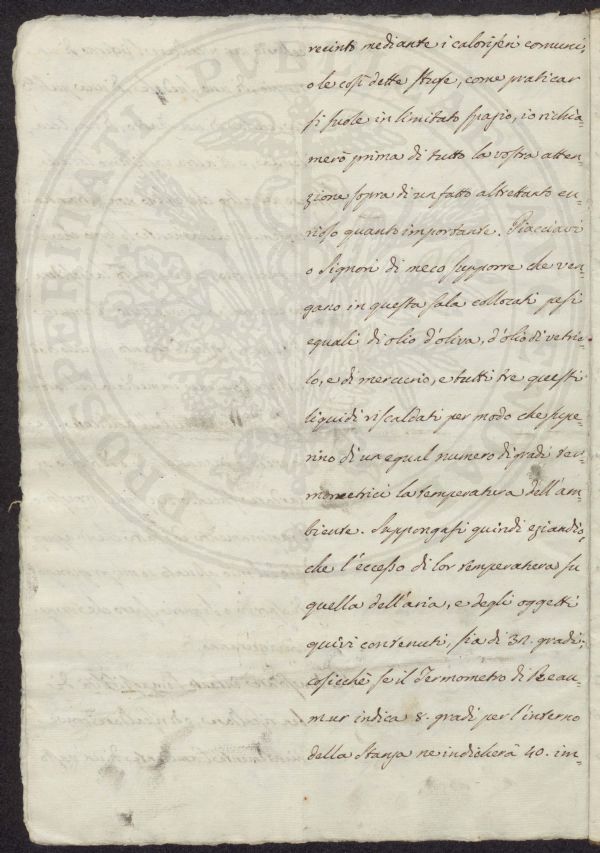 recinto mediante i caloriferi comuni,
o le così dette stufe, come praticar
si suole in limitato spazio, io richia=
merò prima di tutto la vostra atten=
zione sopra di un fatto altrettanto cu=
rioso quanto importante. Piacciavi
o Signori di meco supporre che ven=
gano in questa sala collocati pesi
equali di olio d'oliva, d'olio di vetrio=
lo, e di mercurio, e tutti tre questi
liquidi riscaldati per modo che supe=
rino di un equal numero di gradi ter=
mometrici la temperatura dell'am=
biente. Suppongasi quindi eziandio,
che l'eccesso di lor temperatura su
quella dell'aria, e degli oggetti
quivi contenuti, sia di 32. gradi;
cosicchè se il Termometro di Reau=
mur indica 8. gradi per l'interno
della stanza ne indicherà 40. im=
PROSPERITATI PUBLICAE